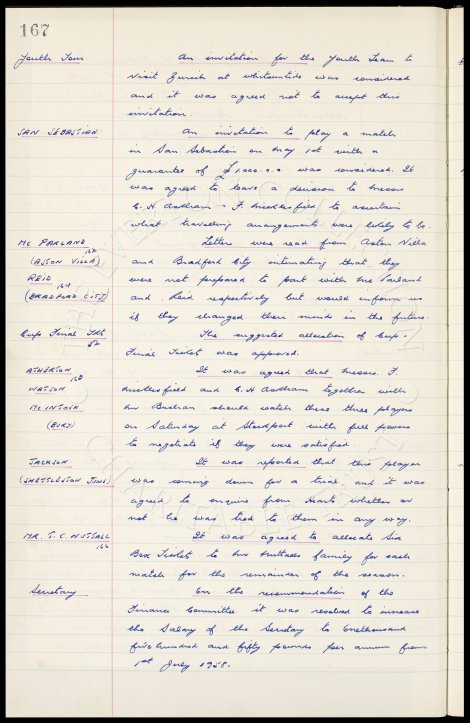 167
Youth Tour An invitation for the Youth Team to
visit Zurich at whitsuntide was considered
and it was agreed not to accept this
invitation.
SAN SEBASTIAN An invitation to play a match
in San Sebastian on May 1st with a
guarantee of £1,000.0.0 was considered. It
was agreed to leave a decision to Messrs
C. H. Aastham & F. Micklesfield to ascertain
what travelling arrangements were likely to be.
Mc PARLAND 162 Letters were read from Aston Villa
(ASTON VILLA) and Bradford City intimating that they
REID 164 were not prepared to part with McParland
(BRADFORD CITY) and Reid respectively but would inform us
if they changed their minds in the future.
Cup Final Tkts 52 The suggested allocation of Cup-
Final Tickets was approved.
ATHERTON 163 It was agreed that Messrs. F.
WATSON and C. H. together with
McINTOSH Mr Buchan should watch these three players
(BURY) on Saturday at Stockport with full powers
to negotiate if they were satisfied.
JACKSON It was reported that this player
(SHETTLESTON JNRS) was coming down for a trial and it was
agreed to enquire from Hearts whether or
not he was tied to them in any way.
MR. T. C. NUTTALL 166 It was agreed to allocate Six
Box Tickets to Mr Nuttalls family for each
match for the remainder of the season.
Secretary On the recommendation of the
Finance Committee it was resolved to increase
the Salary of the Secretary to Onethousand
five hundred and fifty pounds per annum from
1st July 1958.